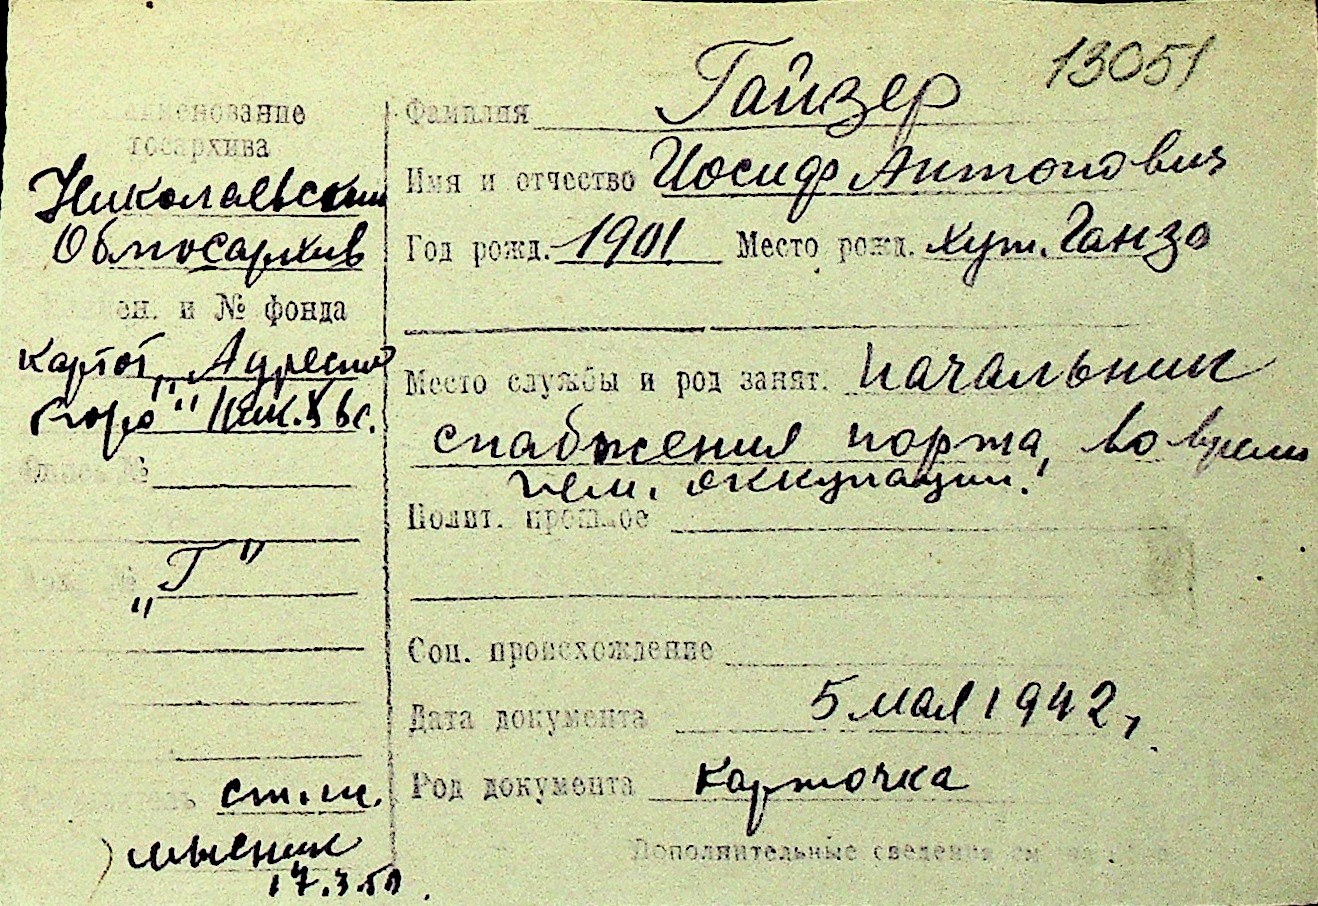 13051
Наименование
госархива
Николаевский
Облгосархив
Наимен. и № фонда
картот. „Адресно
бюро"
Опись №
„Г"
ст. т.
17.3.50
Фамилия Гайзер
Имя и отчество Иосиф Антонович
Год рожд. 1901 Место рожд. хут. Ганзо
Место службы и род занят. начальник
снабжения порта, во время
нем. оккупации.
Полит. прошлое
Соц. происхождение
Дата документа 5 мая 1942,
Род документа карточка
Дополнительные сведения см. на